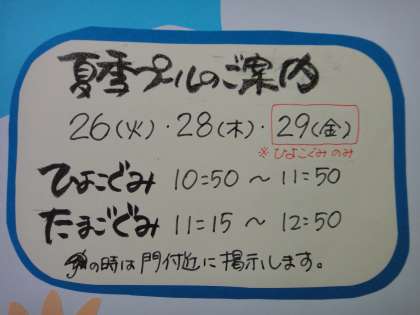 夏季プールのご案内
26(火)・28(木)・29(金)
※ひよこぐみのみ
ひよこぐみ 10:50 ~ 11:50
たまごぐみ 11:15 ~ 12:50
の時は門付近に掲示します。